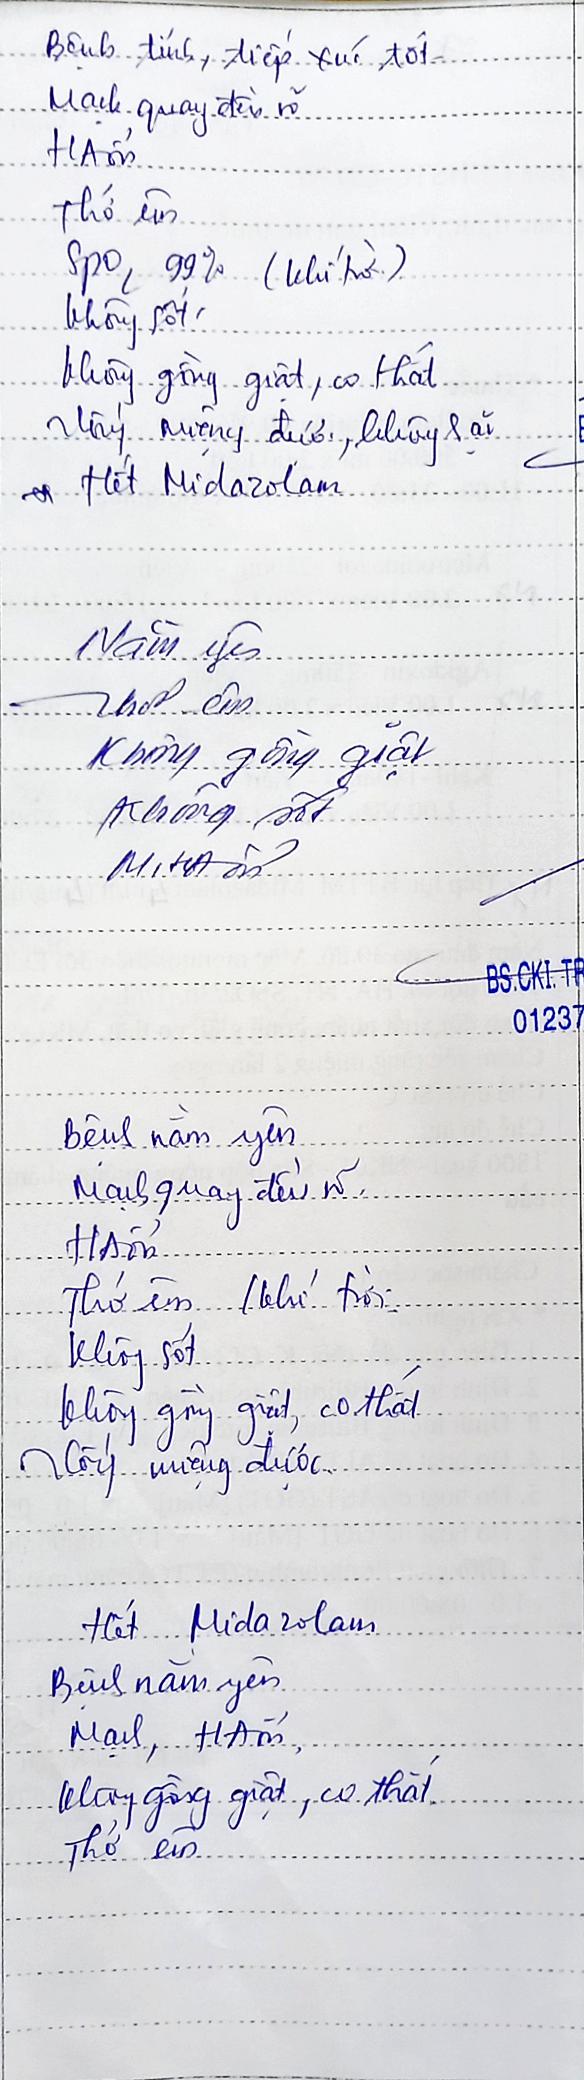 Bệnh tỉnh, tiếp xúc tốt
Mạch quay đều rõ
HA ổn
Thở êm
SpO2 99% (khí trời)
Không sốt
Không gồng giật, co thắt
Uống miệng được, không sặc
Hết Midazolam
Nằm yên
Thở êm
Không gồng giật
Không sốt
M, HA ổn
BS.CKI. TR
01237
Bệnh nằm yên
Mạch quay đều rõ.
HA ổn
Thở êm (khí trời
Không sốt
Không gồng giật, co thắt
Uống miệng được.
Hết Midazolam
Bệnh nằm yên
Mạch, HA ổn,
Không gồng giật, co thắt
Thở êm